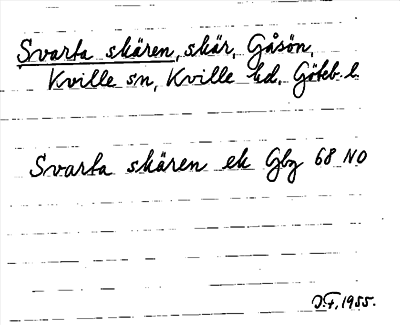 Svarta skären, skär, Gåsön,
Kville sn, Kville hd, Göteb. l.
Svarta skären ek Gbg 68 NO
J.F. 1955.